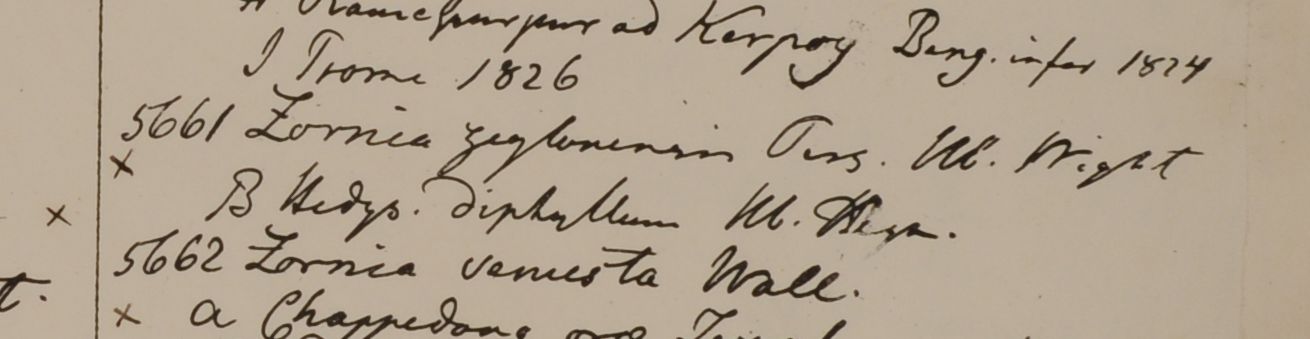 ad Kerpoy Beng. infer 1824
I Prome 1826
5661 Zornia zeylonensis Pers. Hb. Wight
B Hedys. diphyllum Hb. Heyn.
5662 Zornia venusta Wall.
a Chappedong